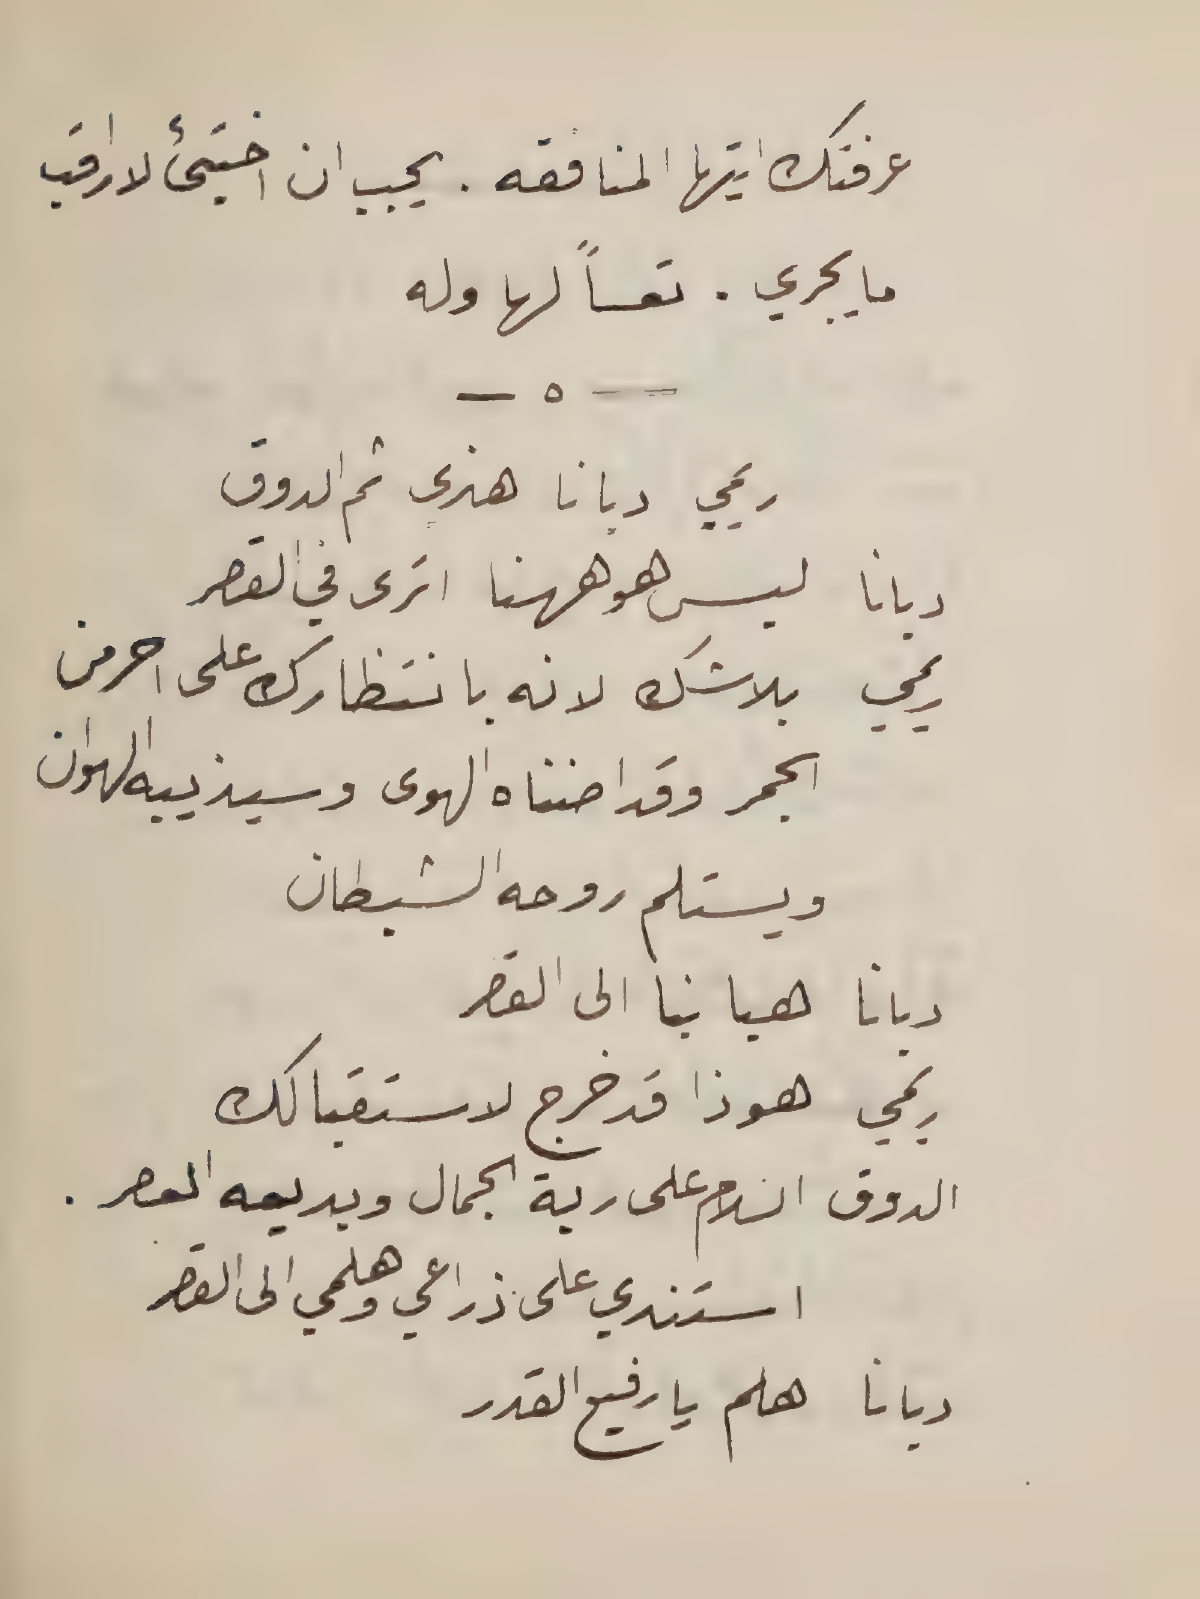 عرفتك ايتها المنافقه . يجب ان اختبئ لاراقب
ما يجري . تعساً لها وله
— ٥ —
ريمي ديانا هنري ثم الدوق
ديانا ليس هو ههنا اترى في القصر
ريمي بلا شك لانه بانتظارك على احر من
الجمر وقد اضناه الهوى وسيذيبه الهوان
ويستلم روحه الشيطان
ديانا هيا بنا الى القصر
ريمي هوذا قد خرج لاستقبالك
الدوق السلام على ربة الجمال وبديعه العصر .
استندي على ذراعي وهلمي الى القصر
ديانا هلم يا رفيع القدر